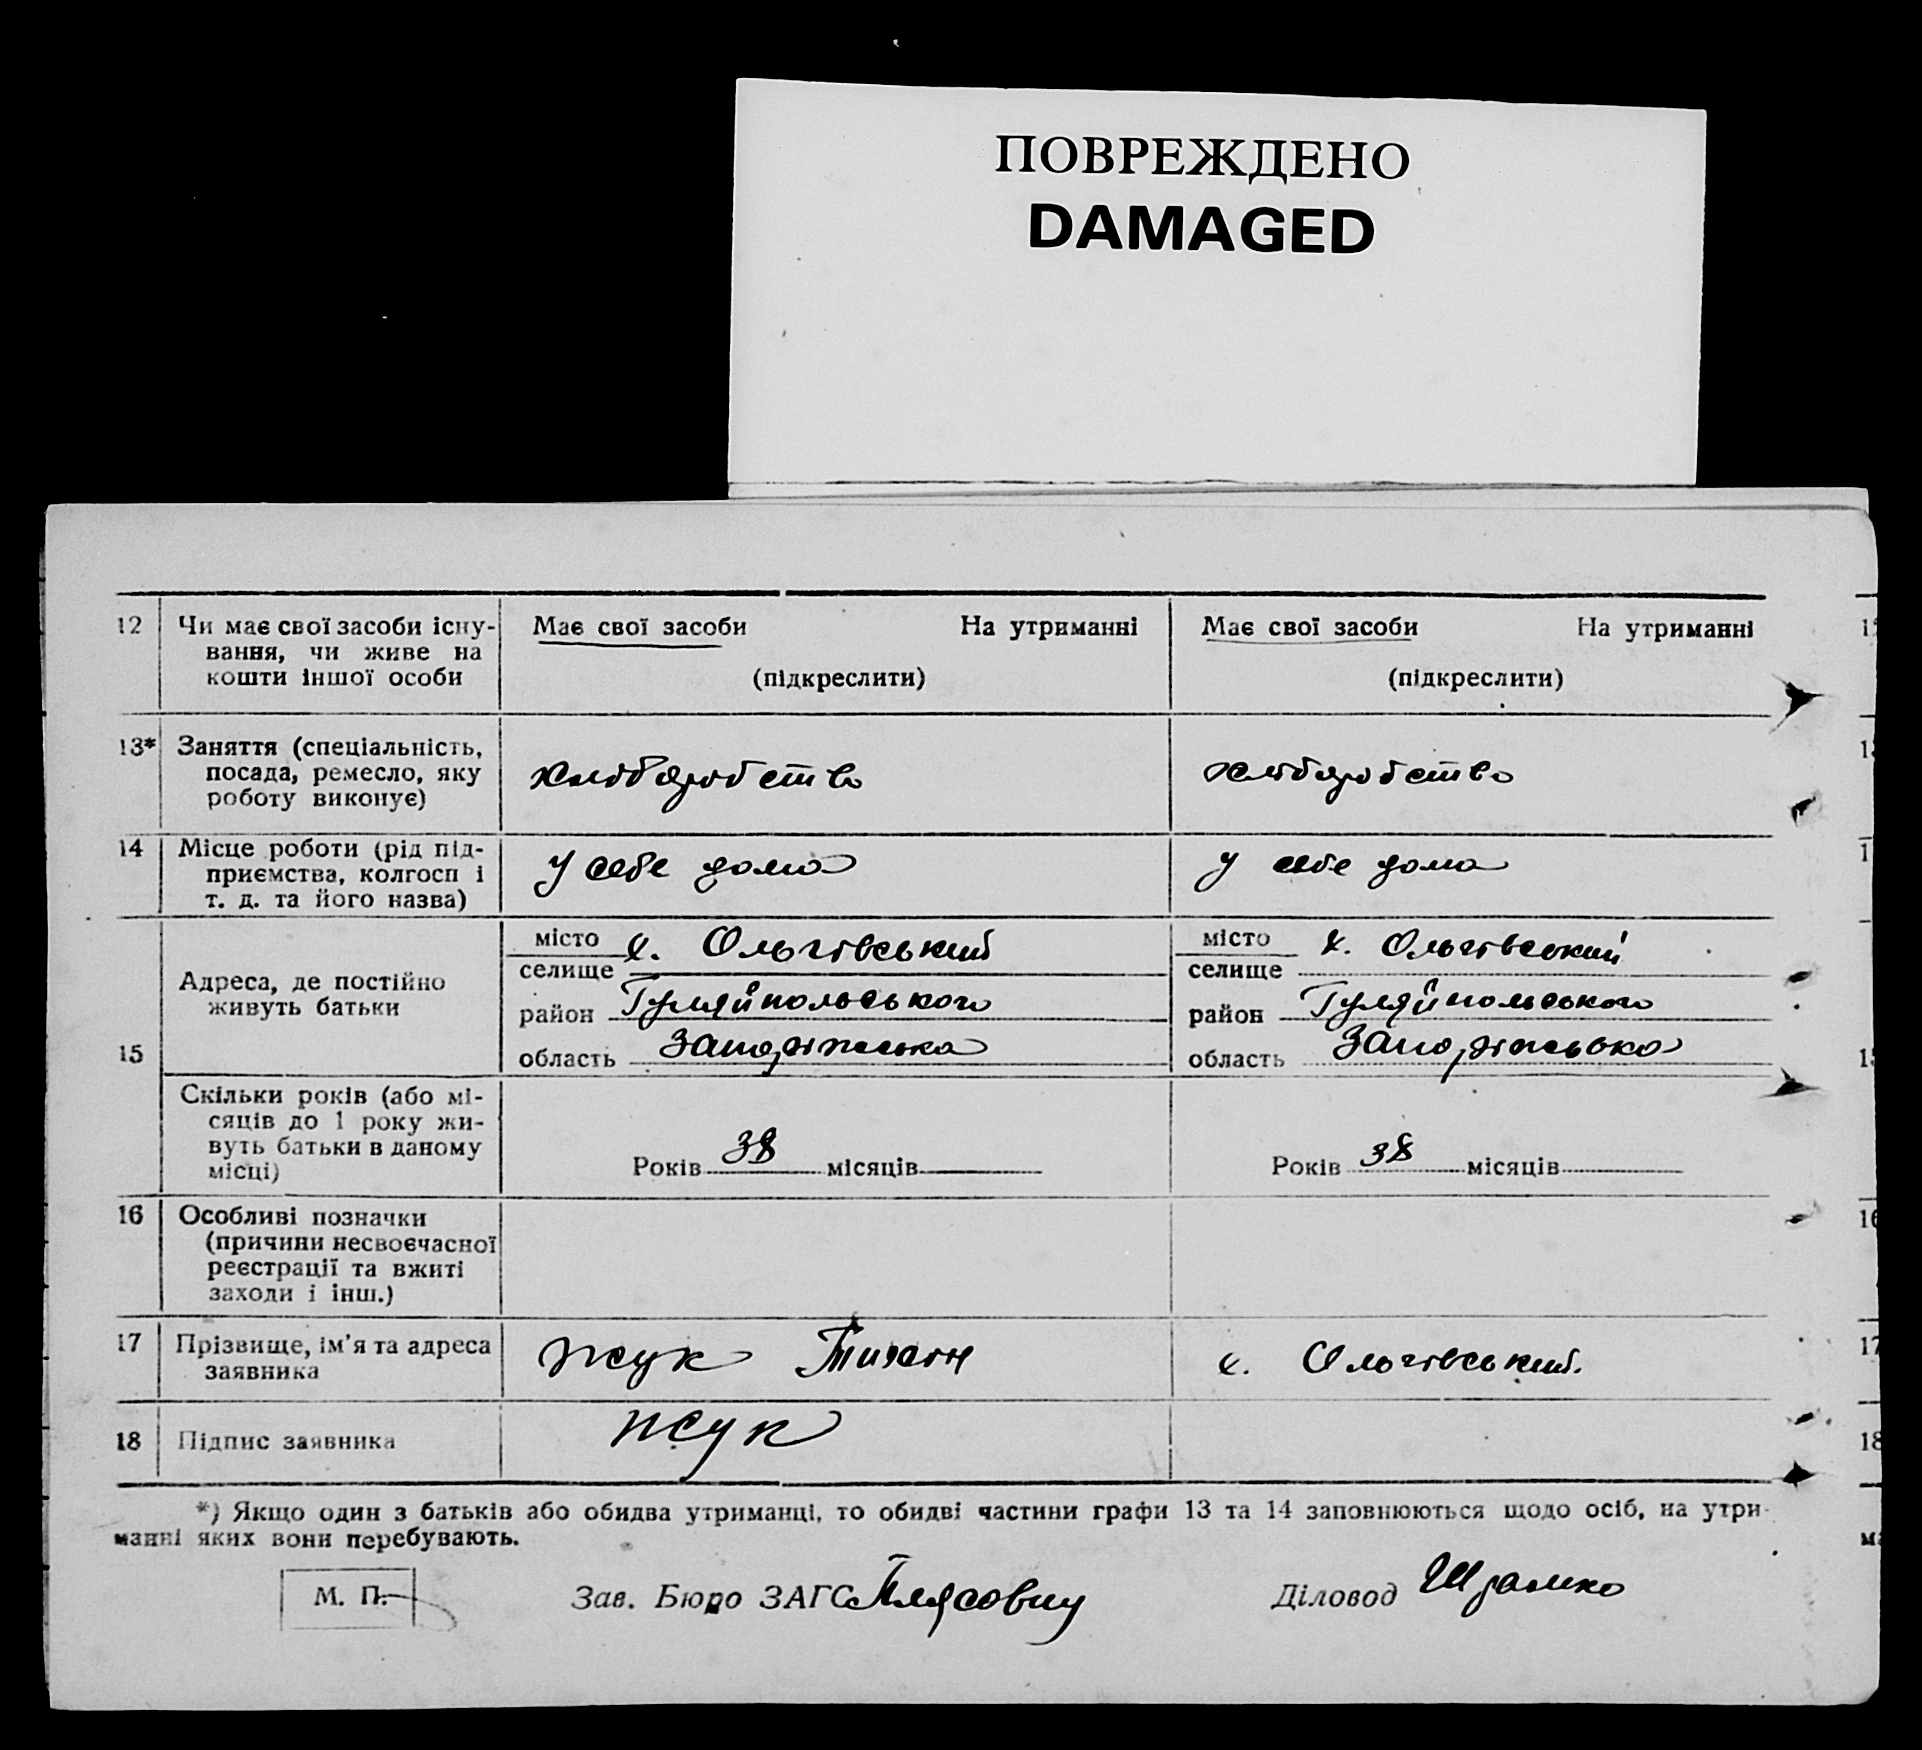 ПОВРЕЖДЕНО
DAMAGED
12 Чи має свої засоби існу- Має свої засоби На утриманні Має свої засоби На утриманні
вання, чи живе на
кошти іншої особи (підкреслити) (підкреслити)
13* Заняття (спеціальність,
посада, ремесло, яку хліборобство хліборобство
роботу виконує)
14 Місце роботи (рід під- у себе дома у себе дома
приємства, колгосп і
т. д. та його назва)
місто х. Ольгівський місто х. Ольгівський
селище селище
Адреса, де постійно
живуть батьки район Гуляйпольського район Гуляйпольського
15 область Запорізька область Запорізька
Скільки років (або мі-
сяців до 1 року жи-
вуть батьки в даному
місці) Років 38 місяців Років 38 місяців
16 Особливі позначки
(причини несвоєчасної
реєстрації та вжиті
заходи і інш.)
17 Прізвище, ім'я та адреса Жук Тихон х. Ольгівський.
заявника
18 Підпис заявника Жук
*) Якщо один з батьків або обидва утриманці, то обидві частини графи 13 та 14 заповнюються щодо осіб, на утри-
манні яких вони перебувають.
М. П. Зав. Бюро ЗАГС Діловод Шрамко